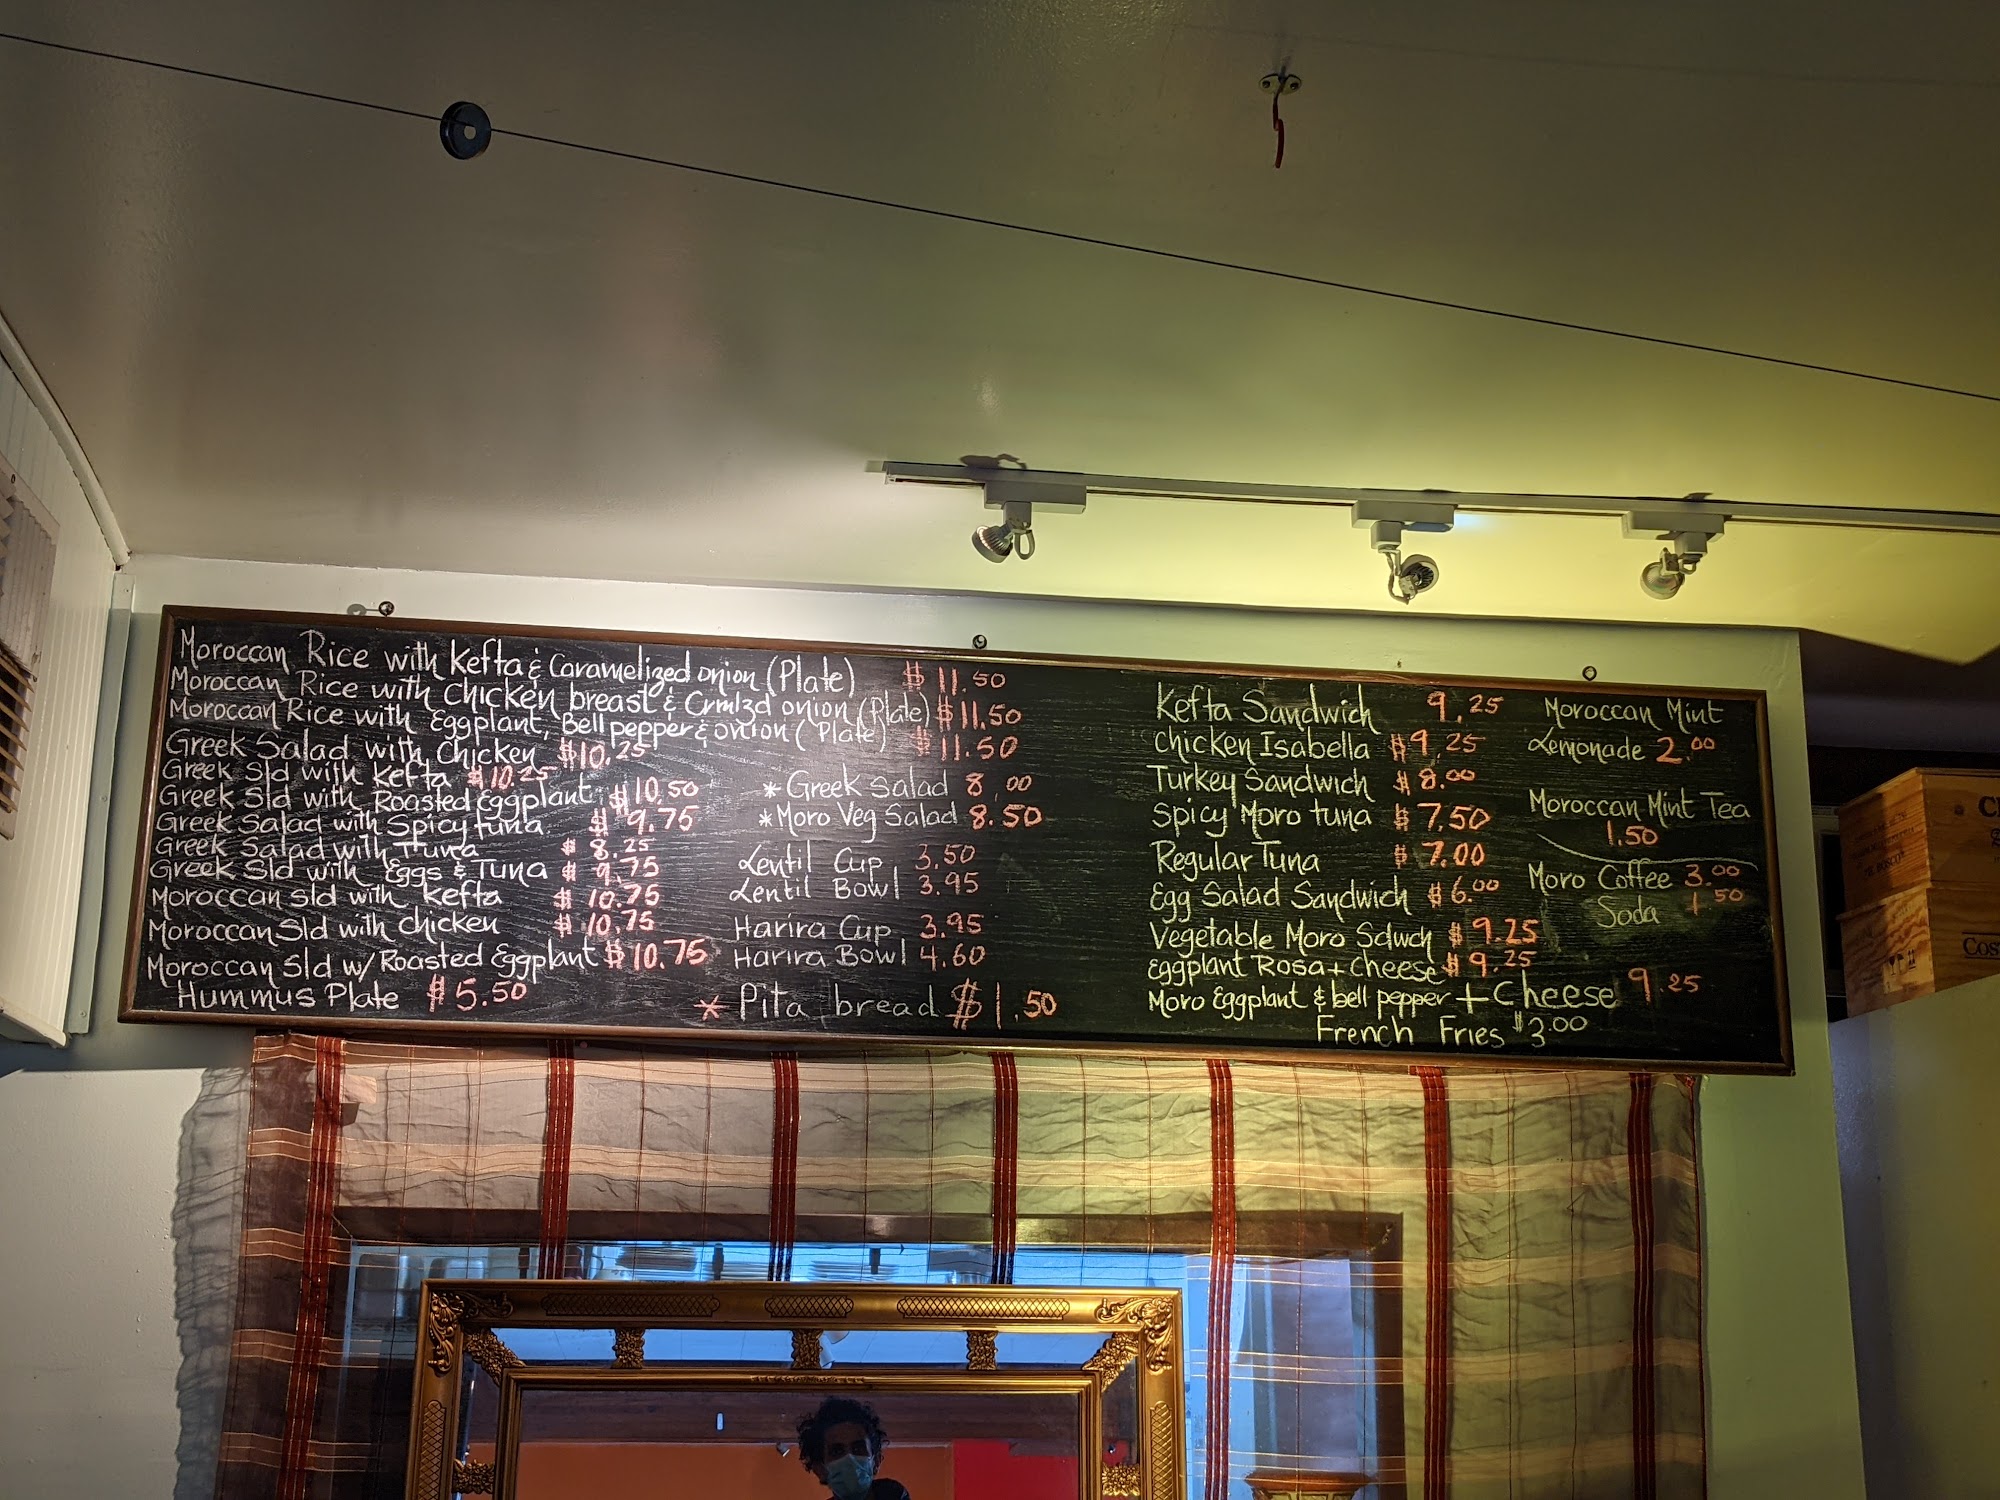 Moroccan Rice with Kefta & Caramelized onion (Plate) $11.50
Moroccan Rice with chicken breast & Crmlzd onion (Plate) $11.50
Moroccan Rice with Eggplant, Bell pepper & onion (Plate) $11.50
Greek Salad with Chicken $10.25
Greek Sld with Kefta $10.25
Greek Sld with Roasted Eggplant $10.50
Greek Salad with Spicy tuna $9.75
Greek Salad with Tuna $8.25
Greek Sld with Eggs & Tuna $9.75
Moroccan sld with Kefta $10.75
Moroccan Sld with chicken $10.75
Moroccan Sld w/ Roasted Eggplant $10.75
Hummus Plate $5.50
* Greek Salad 8.00
* Moro Veg Salad 8.50
Lentil Cup 3.50
Lentil Bowl 3.95
Harira Cup 3.95
Harira Bowl 4.60
* Pita bread $1.50
Kefta Sandwich 9.25
Chicken Isabella $9.25
Turkey Sandwich $8.00
Spicy Moro tuna $7.50
Regular Tuna $7.00
Egg Salad Sandwich $6.00
Vegetable Moro Sdwch $9.25
Eggplant Rosa + cheese $9.25
Moro Eggplant & bell pepper + Cheese 9.25
French Fries $3.00
Moroccan Mint
Lemonade 2.00
Moroccan Mint Tea
1.50
Moro Coffee 3.00
Soda 1.50